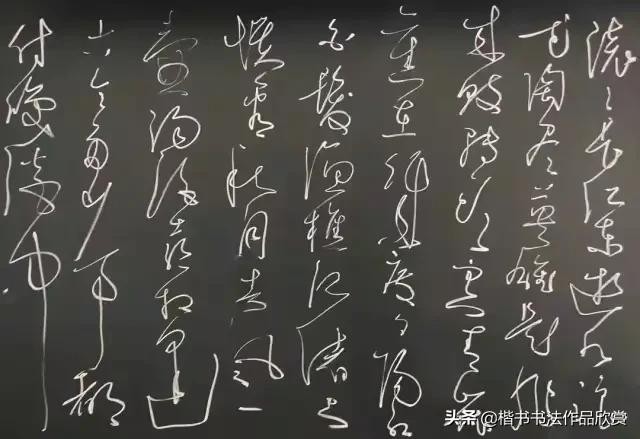 滚々长江东逝水浪
花淘尽英雄是非
成败转头空青山依
旧在几度夕阳红
白发渔樵江渚上
惯看秋月春风一
壶浊酒喜相逢
古今多少事都
付笑谈中
头条 @楷书书法作品欣赏